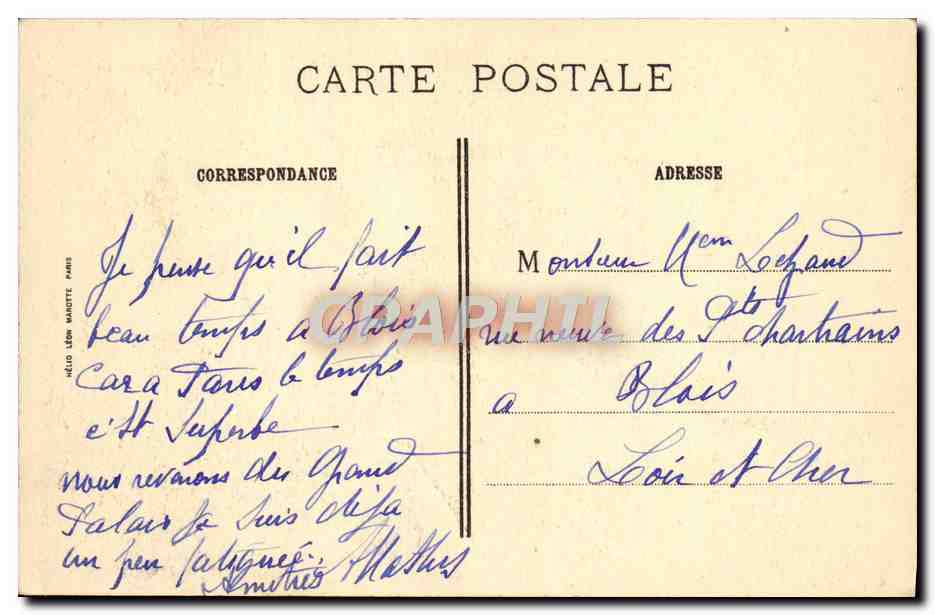 CARTE POSTALE
CORRESPONDANCE
ADRESSE
HÉLIO LÉON MAROTTE PARIS
Je pense qu'il fait
beau temps a Blois
Car a Paris le temps
c'est Superbe
nous revenons du Grand
Palais Je suis déja
un peu fatiguée.
Amitiés
Monsieur
rue neuve des Pts Chartrains
a Blois
Loir et Cher
CPAPHIL